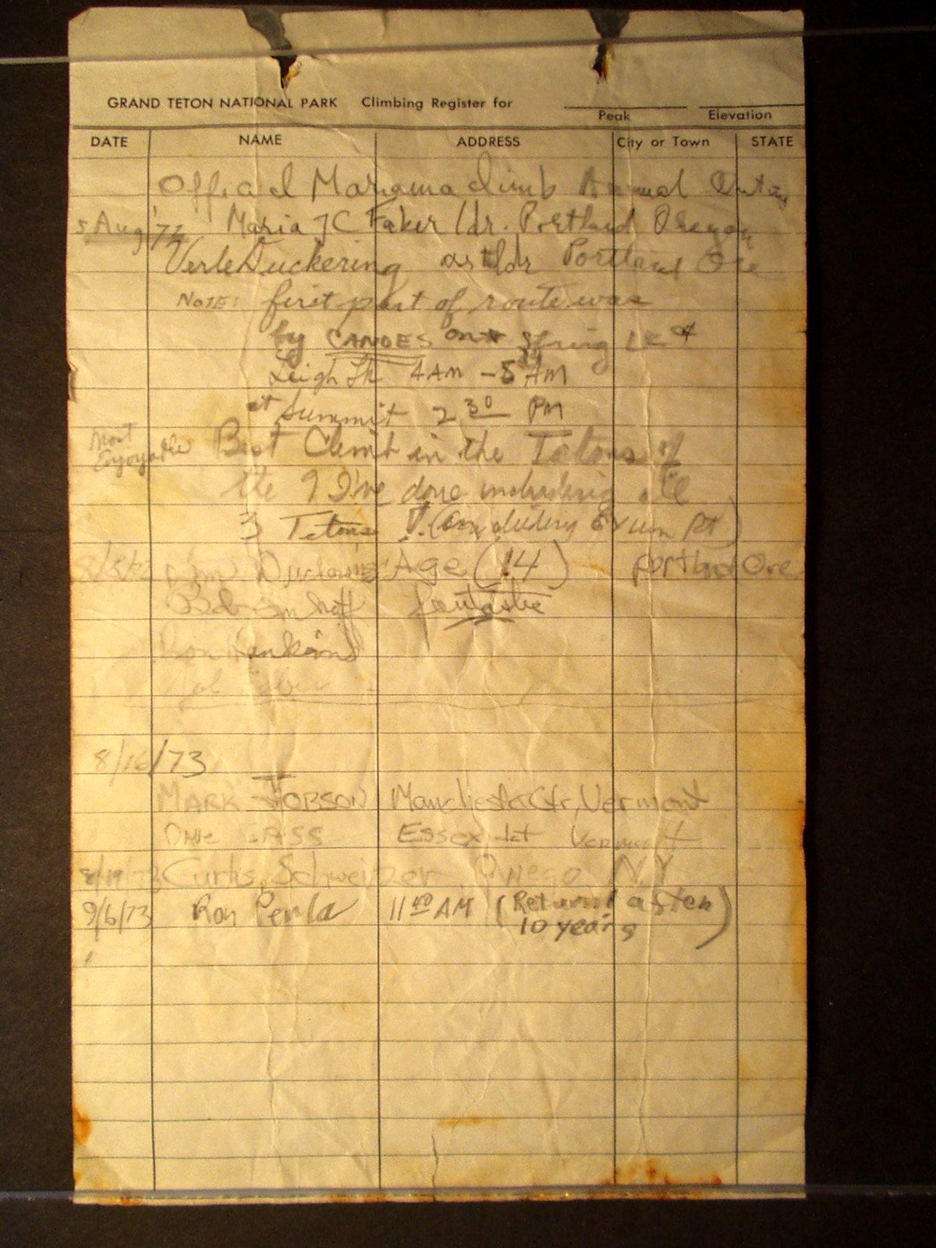 GRAND TETON NATIONAL PARK Climbing Register for
Peak Elevation
DATE NAME ADDRESS City or Town STATE
Official Mazama climb Annual Outing
5 Aug '72 Maria JC Faker ldr. Portland Oregon
Verle Duckering asst ldr Portland Ore
NOTE: first part of route was
by CANOES on String Lk &
Leigh Lk 4 AM - 5 AM
at Summit 2 30 PM
Most Enjoyable Best Climb in the Tetons of
the 9 I've done including all
3 Tetons (including Exum Rt)
8/5/72 Duckering Age (14) Portland Ore
Bob Imhoff fantastic
Ron
8/16/73
MARK HOBSON Manchester Ctr, Vermont
Essex Jct Vermont
8/19/73 Curtis Schweitzer Owego N.Y
9/6/73 Ron Perla 11 40 AM (Return after
10 years)